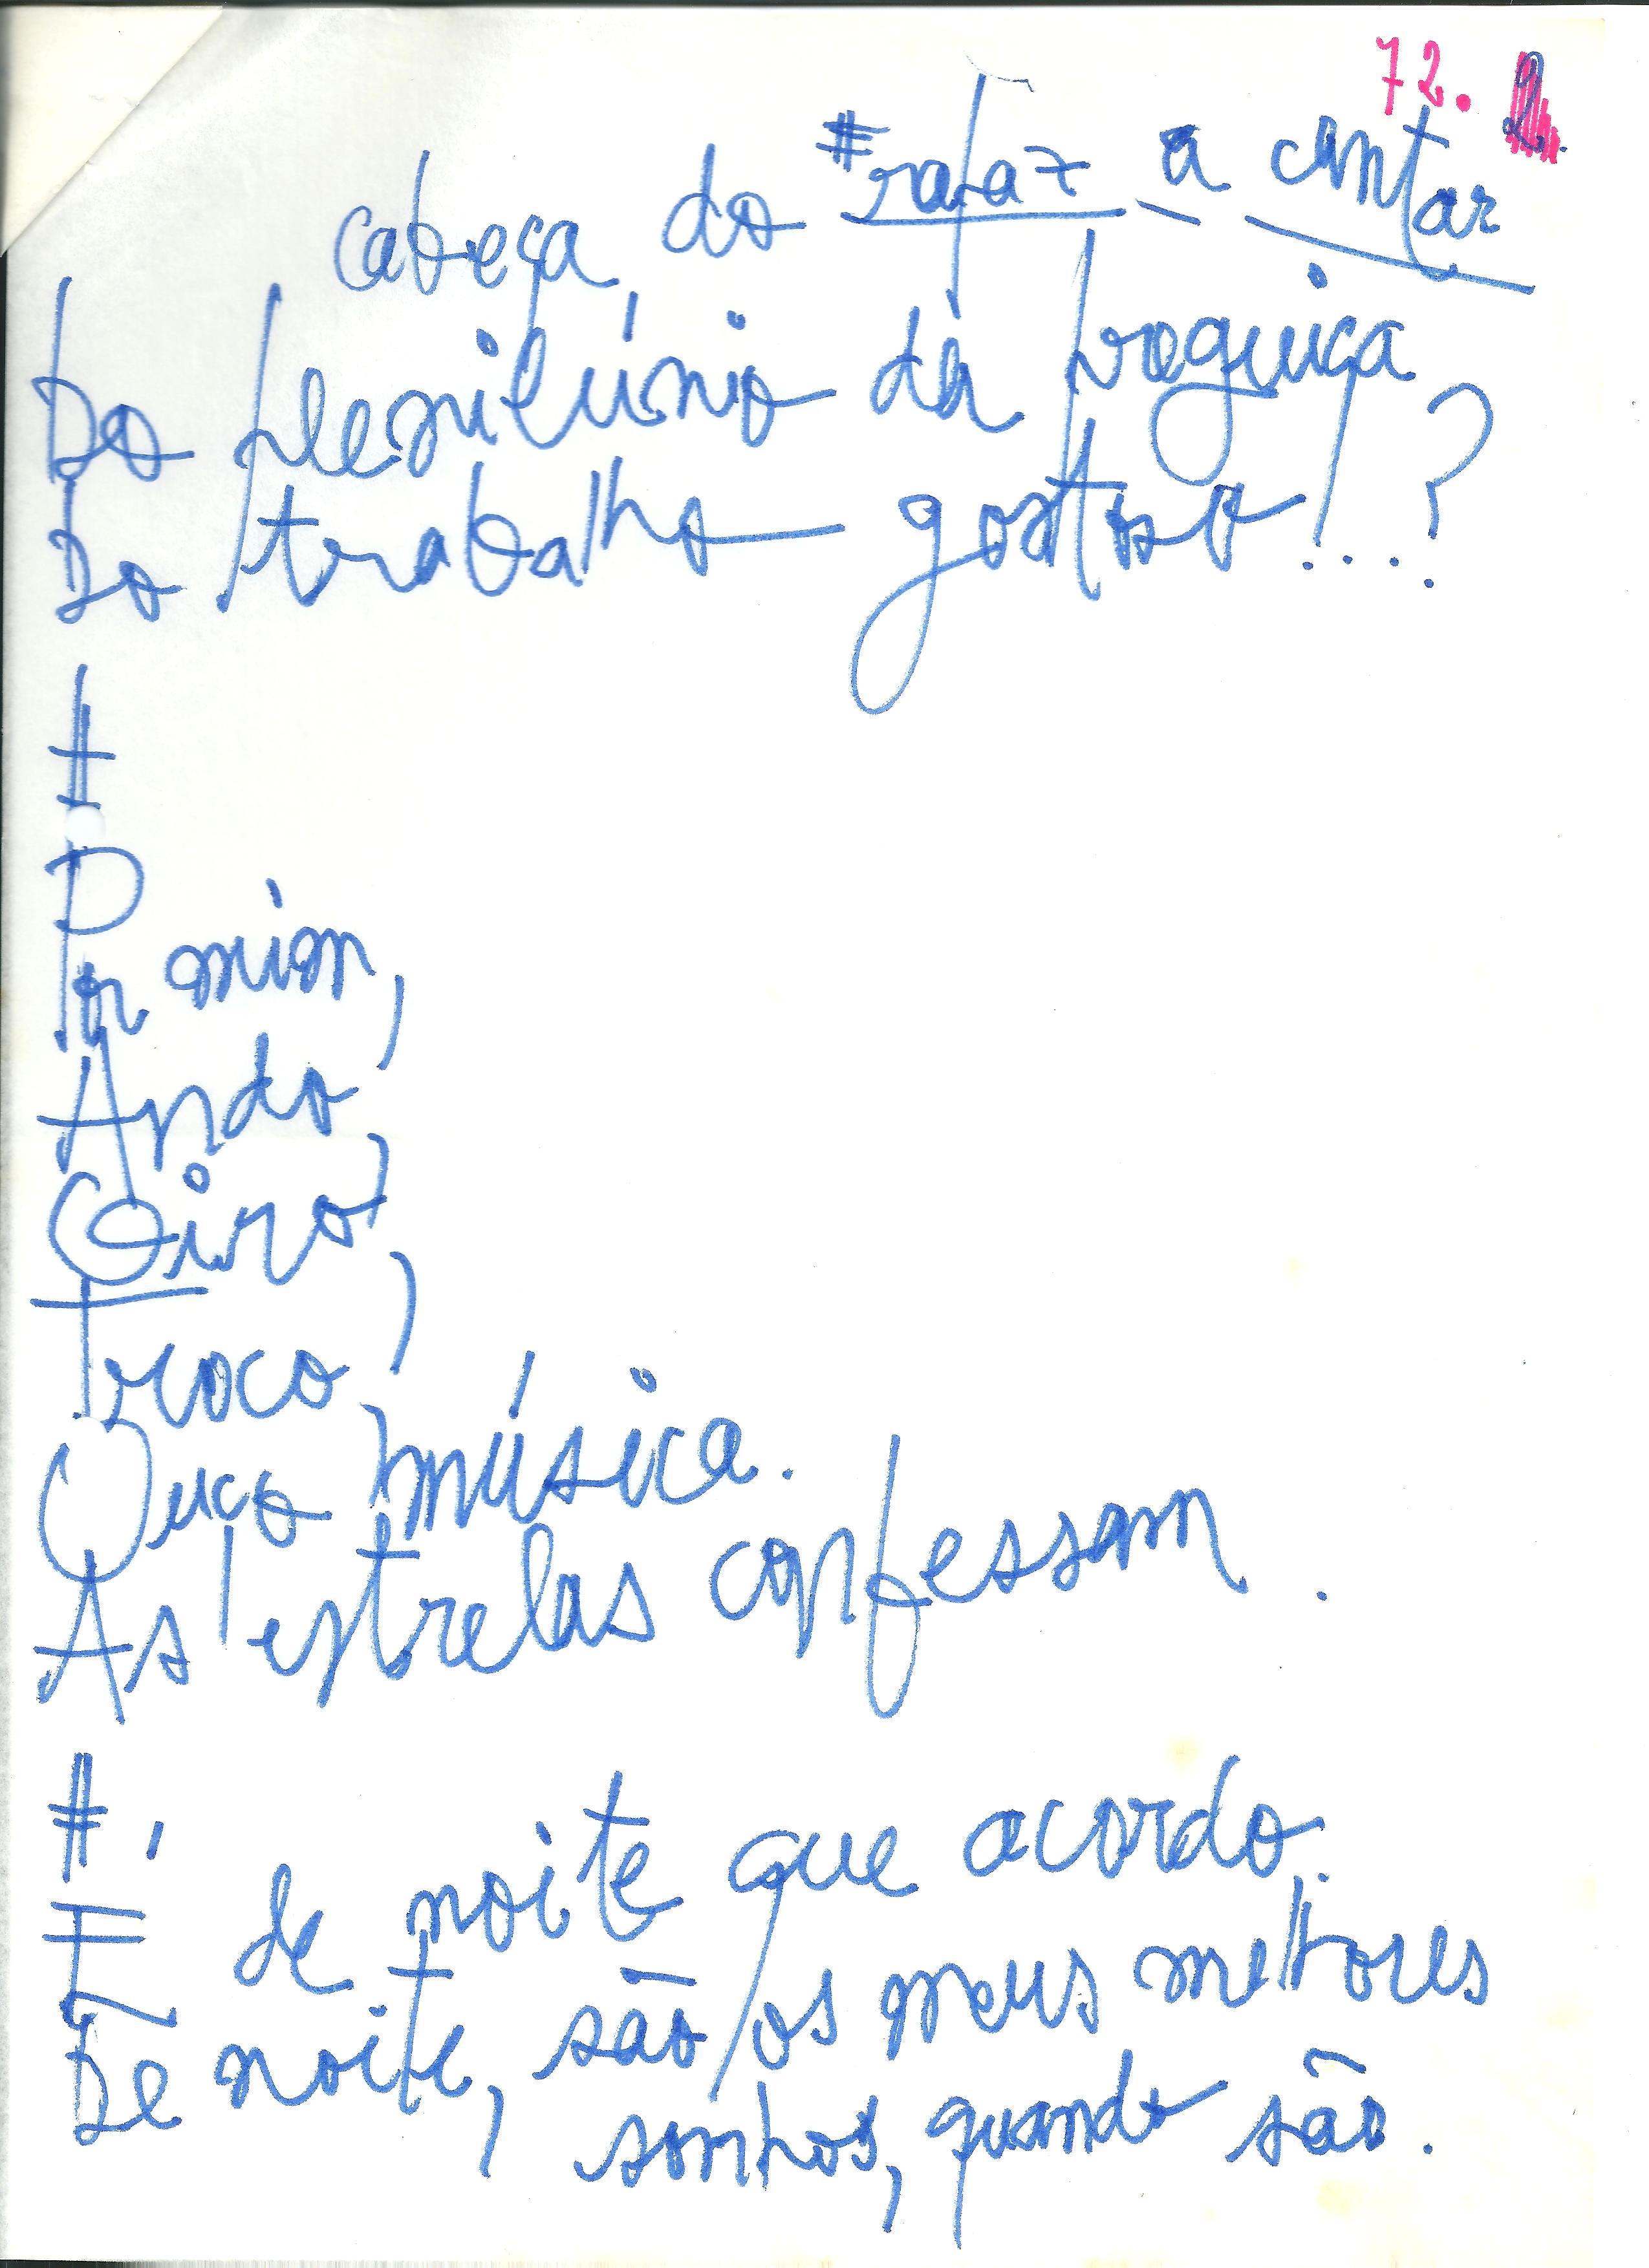 72. 2.
cabeça, do #rafaz a contar
Do plenilúnio da preguiça
Do trabalho gostoso!...?
#
Por mim,
Ando,
Giro,
Troco,
Ouço música.
As estrelas confessam.
#
É de noite que acordo.
De noite, são os meus melhores
sonhos, quando são.